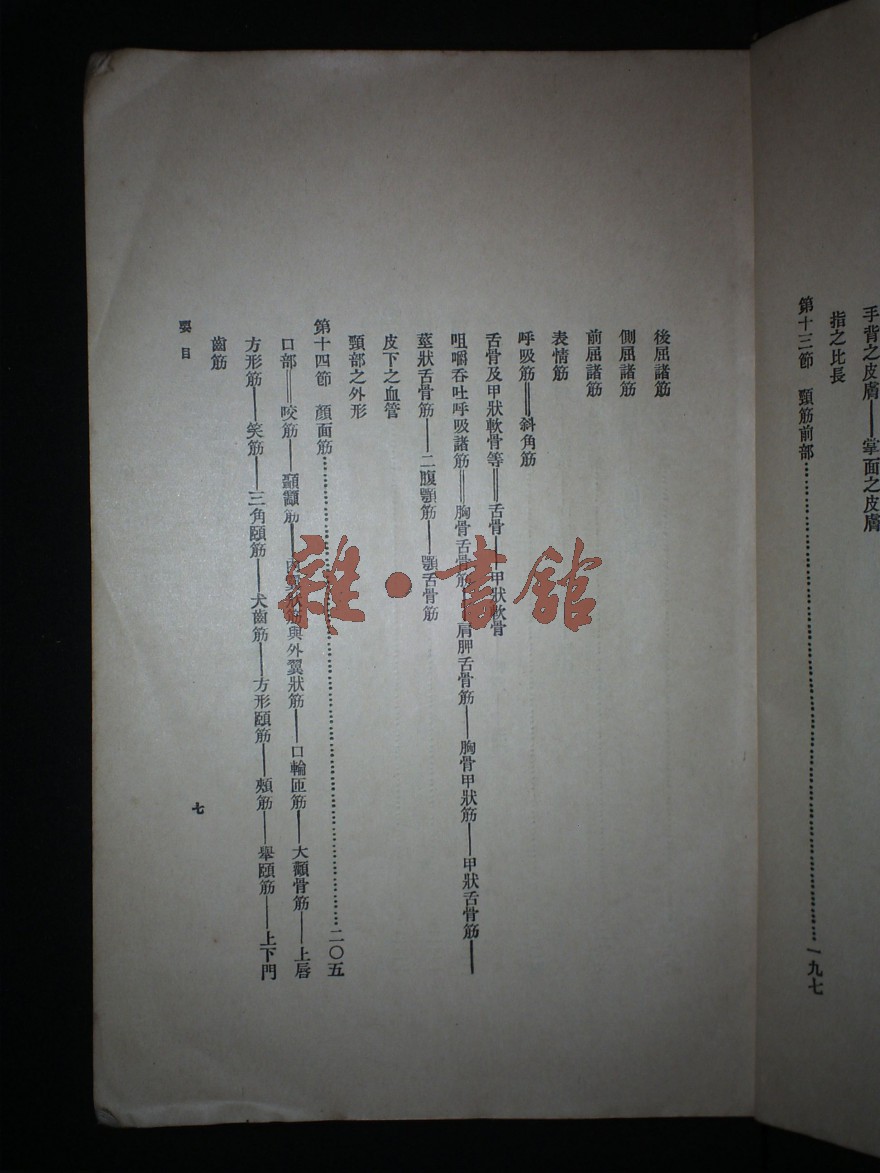 手背之皮膚——掌面之皮膚
指之比長
第十三節　頸筋前部……一九七
後屈諸筋
側屈諸筋
前屈諸筋
表情筋
呼吸筋══斜角筋
舌骨及甲狀軟骨等══舌骨——甲狀軟骨
咀嚼吞吐呼吸諸筋══胸骨舌骨筋——肩胛舌骨筋——胸骨甲狀筋——甲狀舌骨筋——
莖狀舌骨筋——二腹顎筋——顎舌骨筋
皮下之血管
頸部之外形
第十四節　顏面筋……二〇五
口部══咬筋——顳顬筋——翼狀筋與外翼狀筋——口輪匝筋——大顴骨筋——上唇
方形筋——笑筋——三角頤筋——犬齒筋——方形頤筋——頰筋——舉頤筋——上下門
齒筋
要目
七
雜·書館